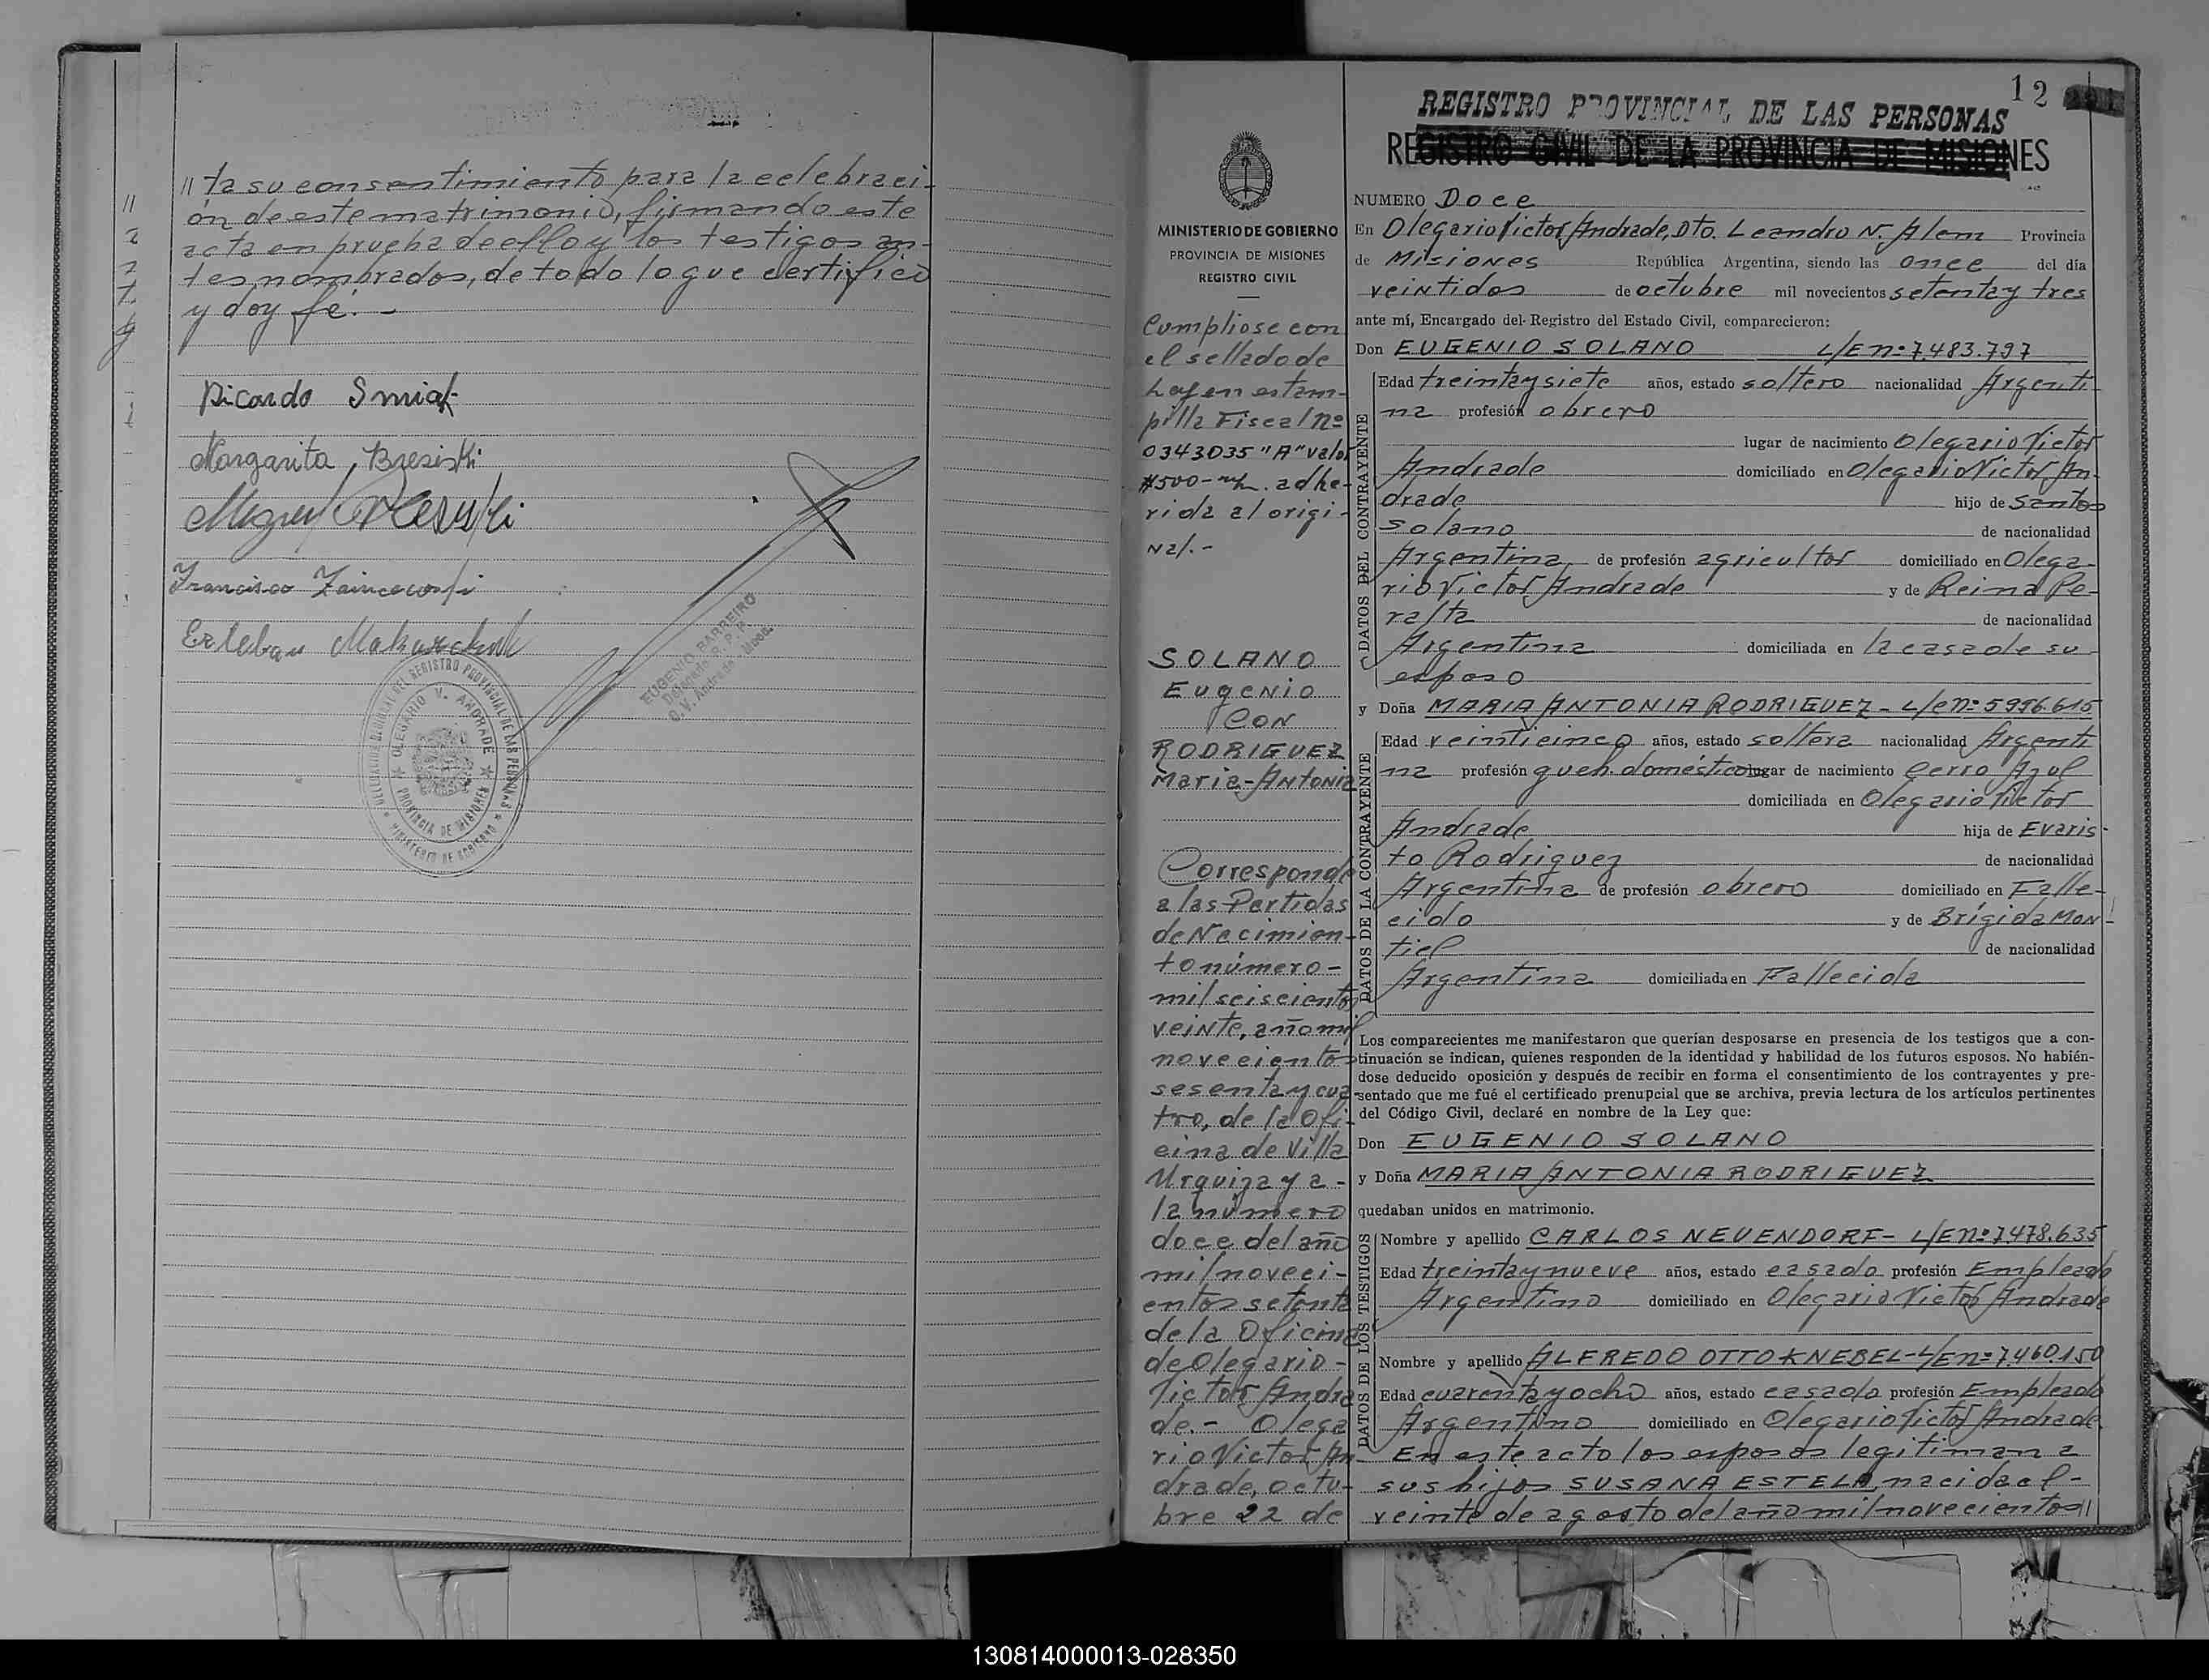 // ta su consentimiento para la celebraci-
ón de este matrimonio, firmando este
acta en prueba de ello y los testigos an-
tes nombrados, de todo lo que certifico
y doy fé. -
Ricardo Smiak
Margarita Bresiski
Miguel
Francisco
Esteban
EUGENIO BARREIRO
Delegado R. P. P.
O. V. Andrade - Mnes.
DELEGACION SECCIONAL DEL REGISTRO PROVINCIAL DE LAS PERSONAS
OLEGARIO V. ANDRADE
PROVINCIA DE MISIONES
MINISTERIO DE GOBIERNO
12
REGISTRO PROVINCIAL DE LAS PERSONAS
REGISTRO CIVIL DE LA PROVINCIA DE MISIONES
MINISTERIO DE GOBIERNO
PROVINCIA DE MISIONES
REGISTRO CIVIL
Cumpliose con
el sellado de
Ley en estam-
pilla Fiscal nº
0343035 "A" valor
$500- m/n. adhe-
rida al origi-
nal.-
SOLANO
Eugenio
CON
RODRIGUEZ
Maria-Antonia
Corresponde
a las Partidas
de Nacimien-
to número-
mil seiscientos
veinte, año mil
novecientos
sesenta y cua-
tro, de la Ofi-
cina de Villa
Urquiza y a-
la número
doce del año
mil noveci-
entos setenta
de la Oficina
de Olegario-
Victor Andra
de.- Olega
rio Victor An-
drade, octu-
bre 22 de
NUMERO Doce
En Olegario Victor Andrade, Dto. Leandro N. Alem Provincia
de Misiones República Argentina, siendo las once del día
veintidos de octubre mil novecientos setenta y tres
ante mí, Encargado del Registro del Estado Civil, comparecieron:
Don EUGENIO SOLANO L/E nº 7.483.797
DATOS DEL CONTRAYENTE
Edad treinta y siete años, estado soltero nacionalidad Argenti
na profesión obrero
lugar de nacimiento Olegario Victor
Andrade domiciliado en Olegario Victor An-
drade hijo de Santos
Solano de nacionalidad
Argentina de profesión agricultor domiciliado en Olega-
rio Victor Andrade y de Reina Pe-
ralta de nacionalidad
Argentina domiciliada en la casa de su
esposo
y Doña MARIA ANTONIA RODRIGUEZ - L/C nº 5.996.615
DATOS DE LA CONTRAYENTE
Edad veinticinco años, estado soltera nacionalidad Argenti
na profesión queh. domésticos lugar de nacimiento Cerro Azul
domiciliada en Olegario Victor
Andrade hija de Evaris-
to Rodriguez de nacionalidad
Argentina de profesión obrero domiciliado en Falle-
cido y de Brígida Mon-
tiel de nacionalidad
Argentina domiciliada en Fallecida
Los comparecientes me manifestaron que querían desposarse en presencia de los testigos que a con-
tinuación se indican, quienes responden de la identidad y habilidad de los futuros esposos. No habién-
dose deducido oposición y después de recibir en forma el consentimiento de los contrayentes y pre-
sentado que me fué el certificado prenupcial que se archiva, previa lectura de los artículos pertinentes
del Código Civil, declaré en nombre de la Ley que:
Don EUGENIO SOLANO
y Doña MARIA ANTONIA RODRIGUEZ
quedaban unidos en matrimonio.
DATOS DE LOS TESTIGOS
Nombre y apellido CARLOS NEUENDORF- L/E nº 7.478.635
Edad treinta y nueve años, estado casado profesión Empleado
Argentino domiciliado en Olegario Victor Andrade
Nombre y apellido ALFREDO OTTO KNEBEL- L/E nº 7.460.150
Edad cuarenta y ocho años, estado casado profesión Empleado
Argentino domiciliado en Olegario Victor Andrade
En este acto los esposos legitiman a
sus hijos SUSANA ESTELA, nacida el-
veinte de agosto del año mil novecientos//
130814000013-028350